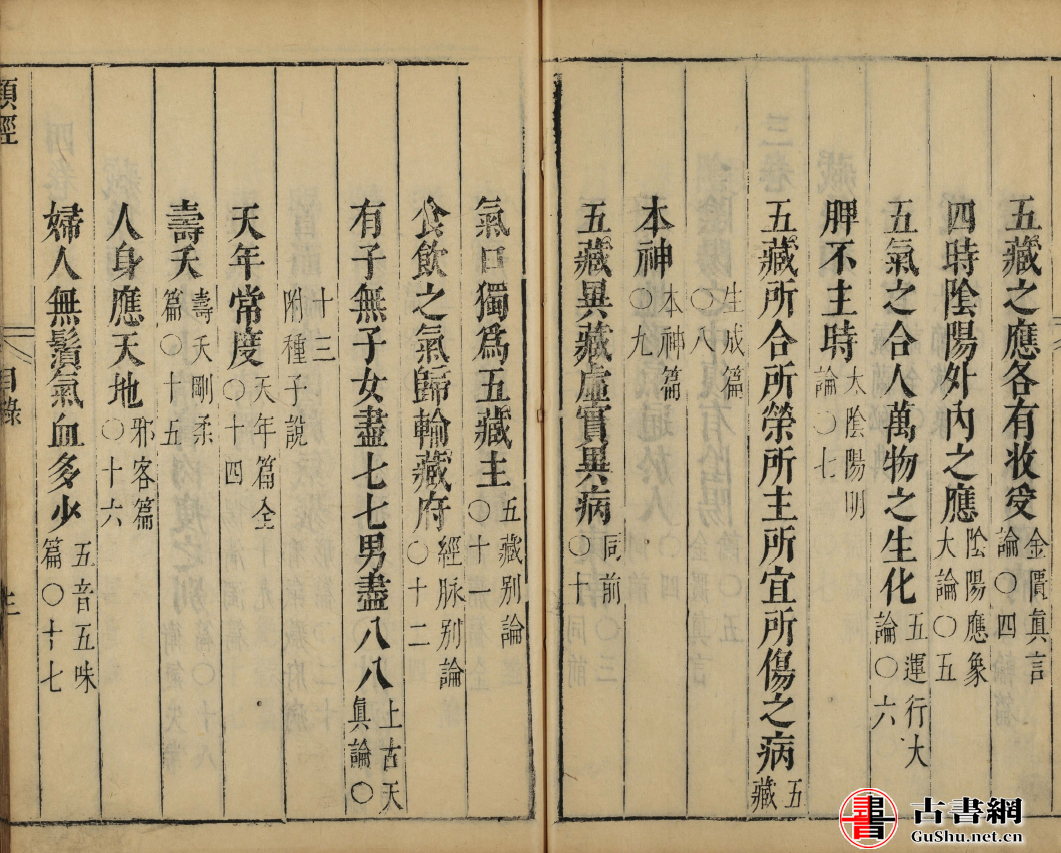 五藏之應各有收受金匱眞言論〇四
四時陰陽外內之應陰陽應象大論〇五
五氣之合人萬物之生化五運行大論〇六
脾不主時太陰陽明論〇七
五藏所合所榮所主所宜所傷之病五藏
生成篇〇八
本神本神篇〇九
五藏異藏虛實異病同前〇十
氣口獨爲五藏主五藏别論〇十一
食飲之氣歸輸藏府經脉别論〇十二
有子無子女盡七七男盡八八上古天眞論〇
十三附種子說
天年常度天年篇全〇十四
壽夭壽夭剛柔篇〇十五
人身應天地邪客篇〇十六
婦人無鬚氣血多少五音五味篇〇十七
類經
目錄
書
古書網
GuShu.net.cn